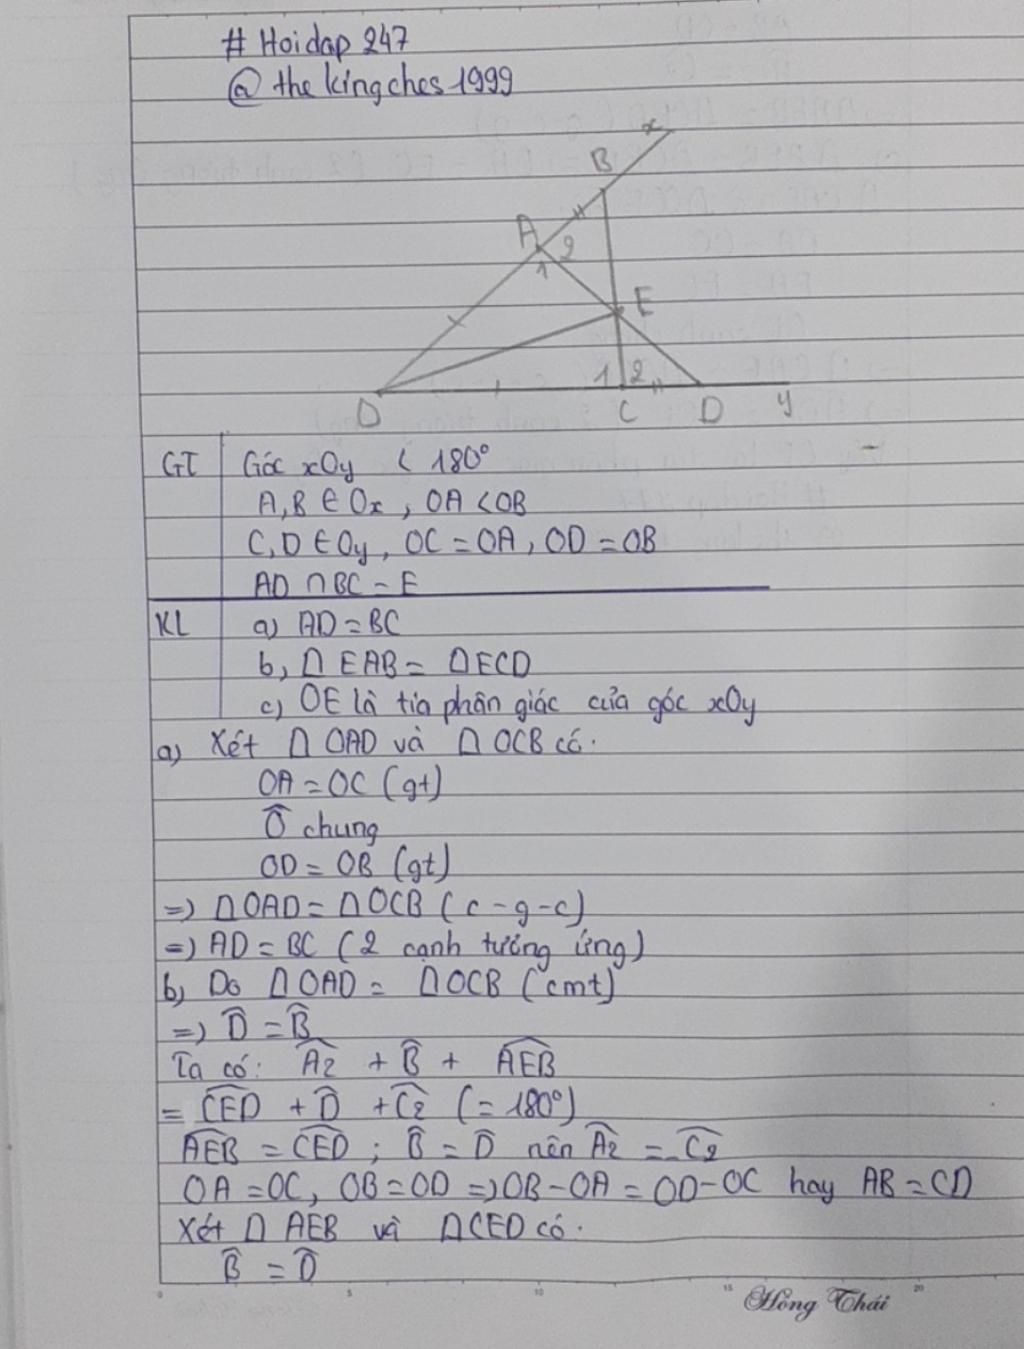 # Hoidap 247
@ the kingches 1999
x
B
A
2
1
E
1 2
O C D y
GT Góc xOy < 180°
A,B ∈ Ox, OA < OB
C,D ∈ Oy, OC = OA, OD = OB
AD ∩ BC = E
KL a) AD = BC
b, Δ EAB = Δ ECD
c) OE là tia phân giác của góc xOy
a) Xét Δ OAD và Δ OCB có.
OA = OC (gt)
Ô chung
OD = OB (gt)
=) Δ OAD = Δ OCB (c-g-c)
=) AD = BC (2 cạnh tương ứng)
b) Do Δ OAD = Δ OCB (cmt)
=) D̂ = B̂
Ta có: Â2 + B̂ + AEB̂
= CED̂ + D̂ + Ĉ2 (= 180°)
AEB̂ = CED̂ ; B̂ = D̂ nên Â2 = Ĉ2
OA = OC, OB = OD =) OB - OA = OD - OC hay AB = CD
Xét Δ AEB và Δ CED có.
B̂ = D̂
0 5 10 15 20
Hồng Thái